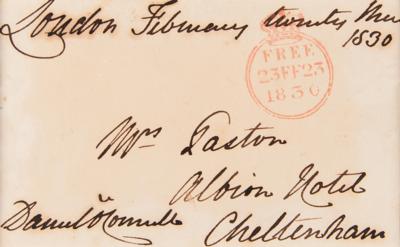 London February twenty three
1830
FREE
23FE23
1830
Mrs Gaston
Albion Hotel
Daniel O'Connell
Cheltenham